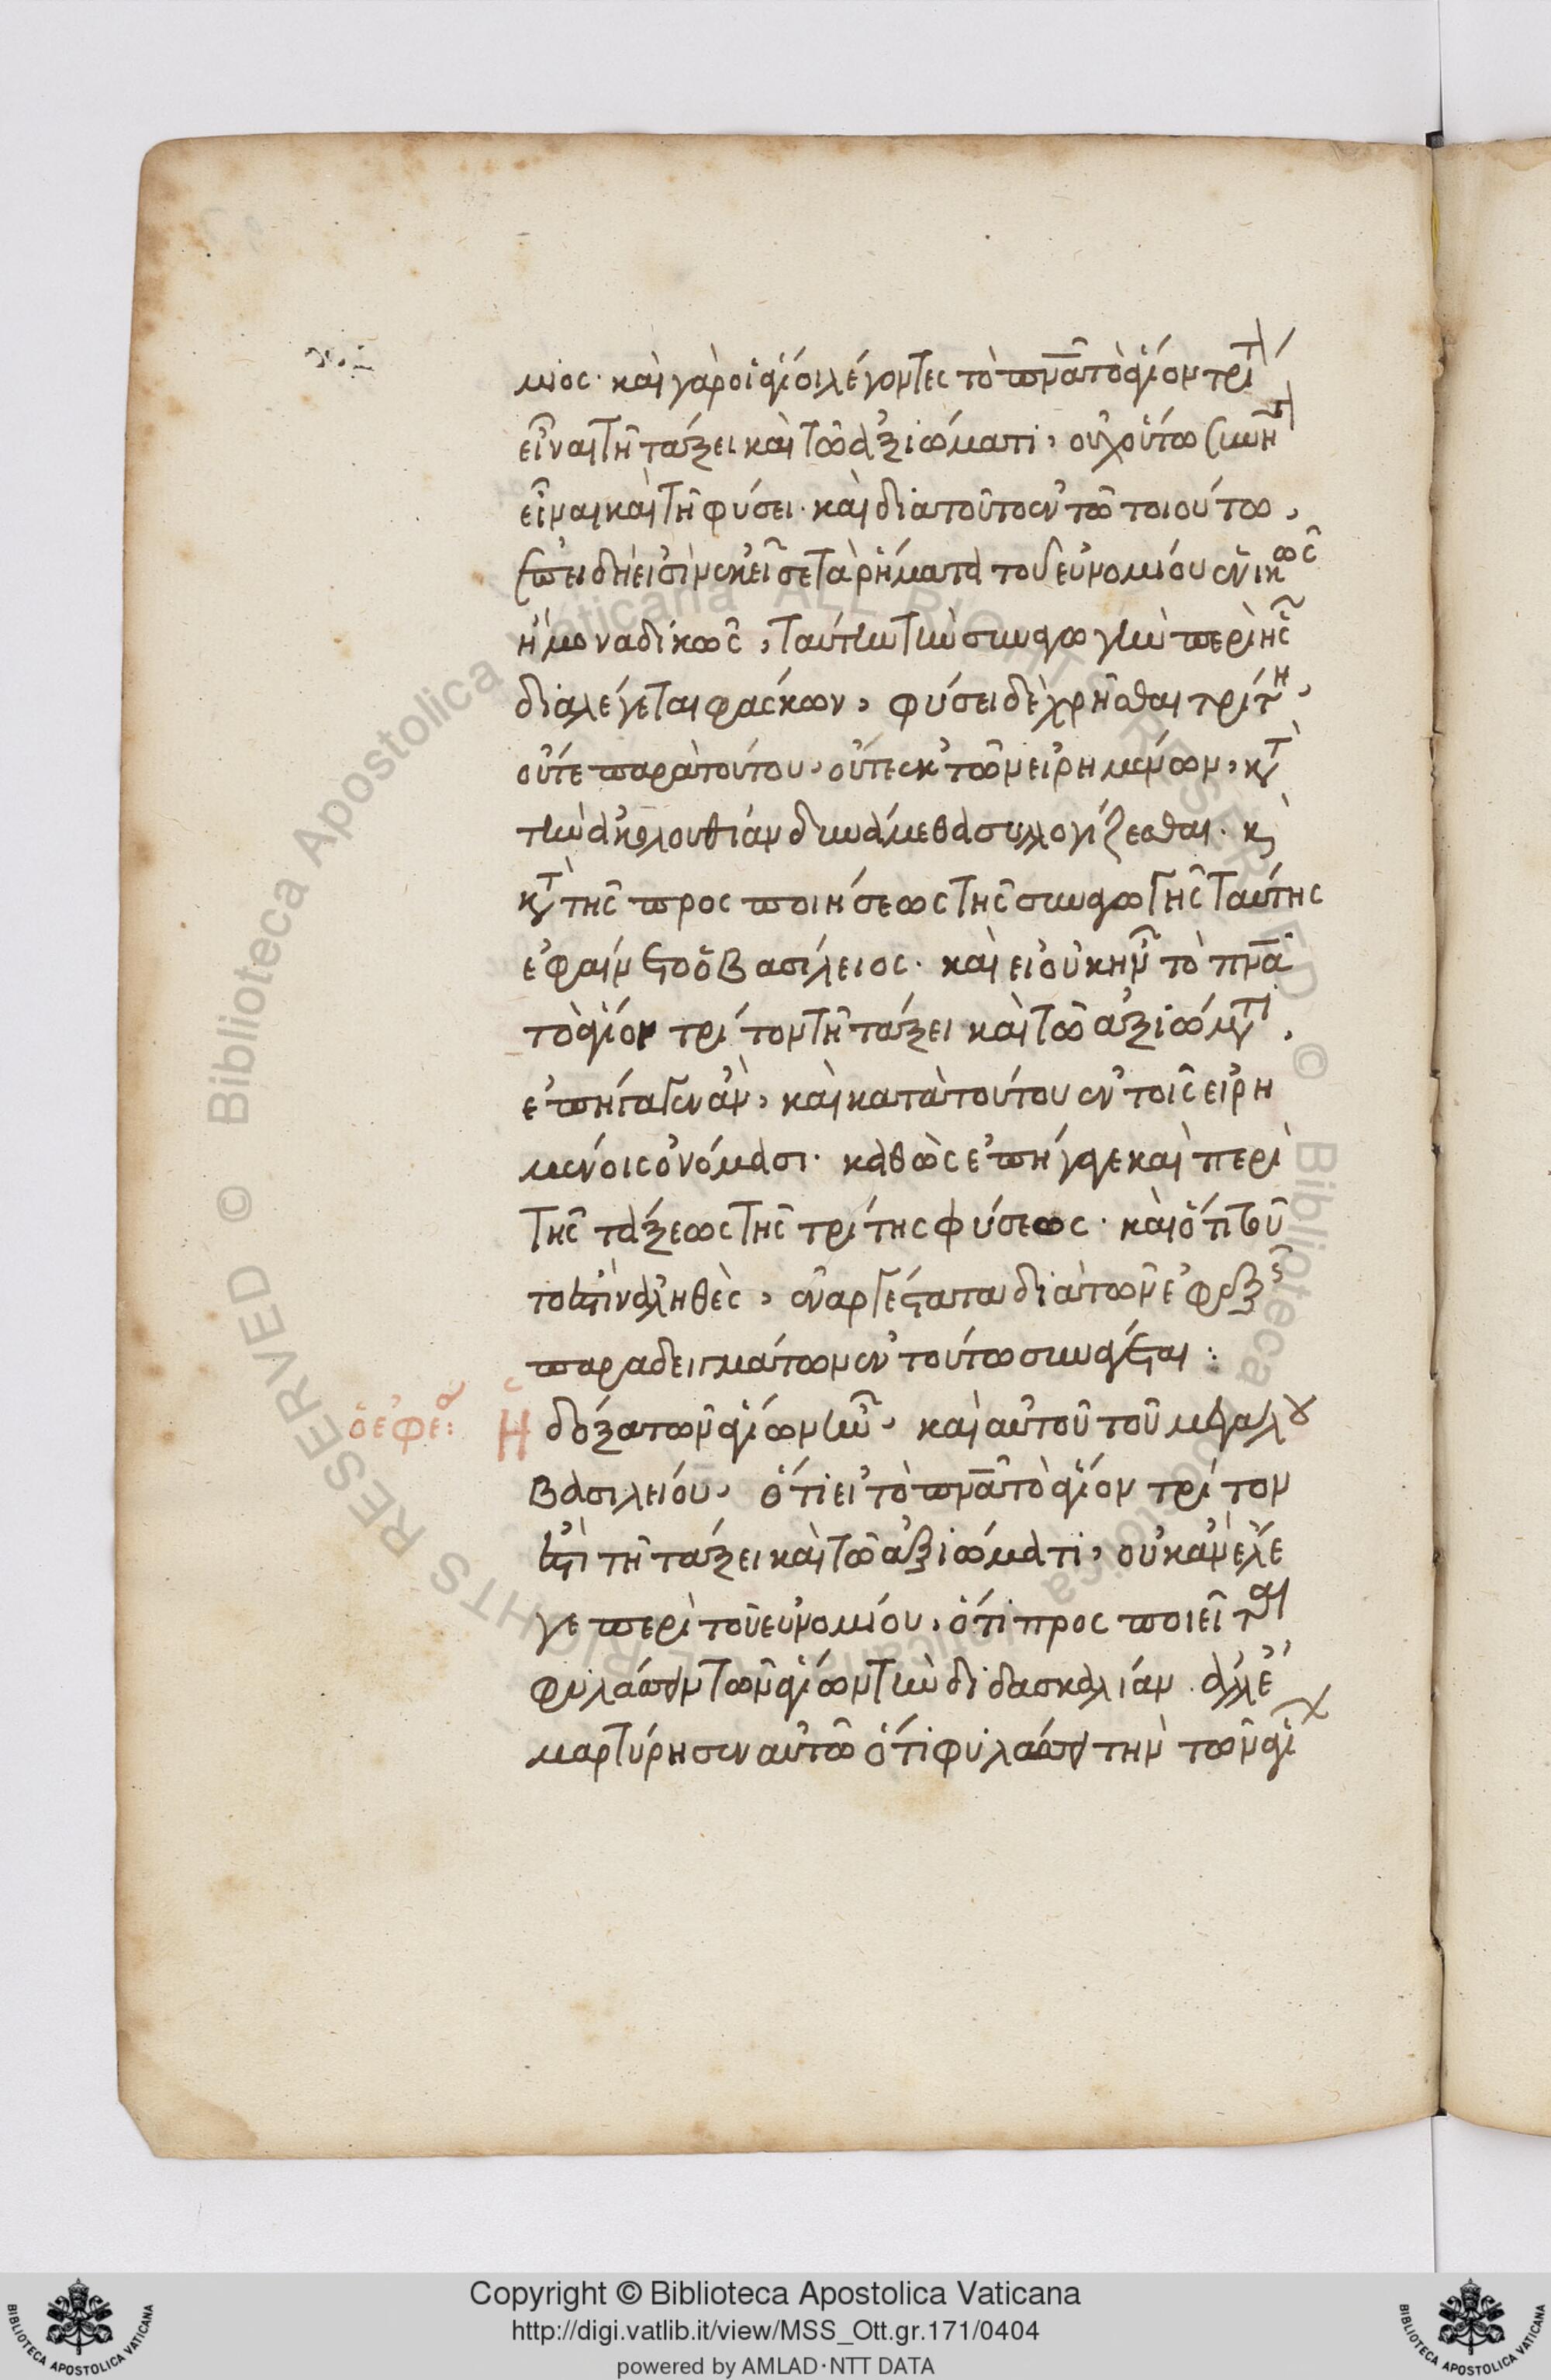 μιος· καὶ γὰρ οἱ ἅγιοι λέγοντες τὸ πνᾶ τὸ ἅγιον τρίτ
εἶναι τῆ τάξει καὶ τῶ ἀξιώματι, οὐχ οὕτω
εἶναι καὶ τῆ φύσει· καὶ διατοῦτο ἐν τῶ τοιούτω,
ἐπειδὴ εἰσὶν ἐκεῖσε τὰ ρήματα τοῦ εὐνομίου ἑνικῶς
ἢ μοναδικῶς, ταύτην τὴν συναγωγὴν περὶ ἧς
διαλέγεται φάσκων, φύσει δὲ χρῆσθαι τρίτη,
οὔτε παρὰ τούτου, οὔτε ἐκ τῶν εἰρημένων, κτ
τὴν ἀκολουθίαν δυνάμεθα συλλογίζεσθαι· κ
κτ τῆς προσποιήσεως τῆς συναγωγῆς ταύτης
ἐφαίνετο ὁ βασίλειος· καὶ εἰ οὐκ ἦν τὸ πνᾶ
τὸ ἅγιον τρίτον τῆ τάξει καὶ τῶ ἀξιώμτι,
ἐπήγαγεν ἂν, καὶ κατὰ τούτου ἐν τοῖς εἰρη
μένοις ὀνόμασι· καθὼς ἐπήγαγε καὶ περὶ
τῆς τάξεως τῆς τρίτης φύσεως· καὶ ὅτι τοῦ
το ἐστὶν ἀληθὲς, ἐναργέστατα διὰ τῶν ἐφεξῆς
παραδειγμάτων ἐν τούτω συνάγεται:
ὁ ἐφέ: Ἡ δόξα τῶν ἁγίων ἦν, καὶ αὐτοῦ τοῦ μεγάλου
βασιλείου, ὅτι εἰ τὸ πνᾶ τὸ ἅγιον τρίτον
ἐστὶ τῆ τάξει καὶ τῶ ἀξιώματι, οὐκ ἂν ἔλε
γε περὶ τοῦ εὐνομίου, ὅτι προσποιεῖται
φυλάττειν τῶν ἁγίων τὴν διδασκαλίαν. ἀλλ' ἐ
μαρτύρησεν αὐτῶ ὅτι φυλάττει τὴν τῶν ἁγί
Copyright © Biblioteca Apostolica Vaticana
http://digi.vatlib.it/view/MSS_Ott.gr.171/0404
powered by AMLAD·NTT DATA